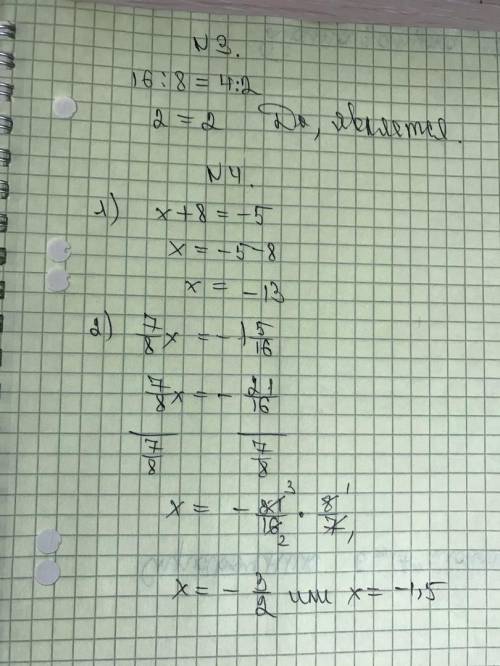 N 3.
16 : 8 = 4:2
2 = 2 Да, является.
N 4.
1) x + 8 = -5
x = -5 - 8
x = -13
2) 7/8 x = -1 5/16
7/8 x = - 21/16
7/8 7/8
x = - 21/16 3 2 · 8/7 1 1
x = - 3/2 или x = -1,5